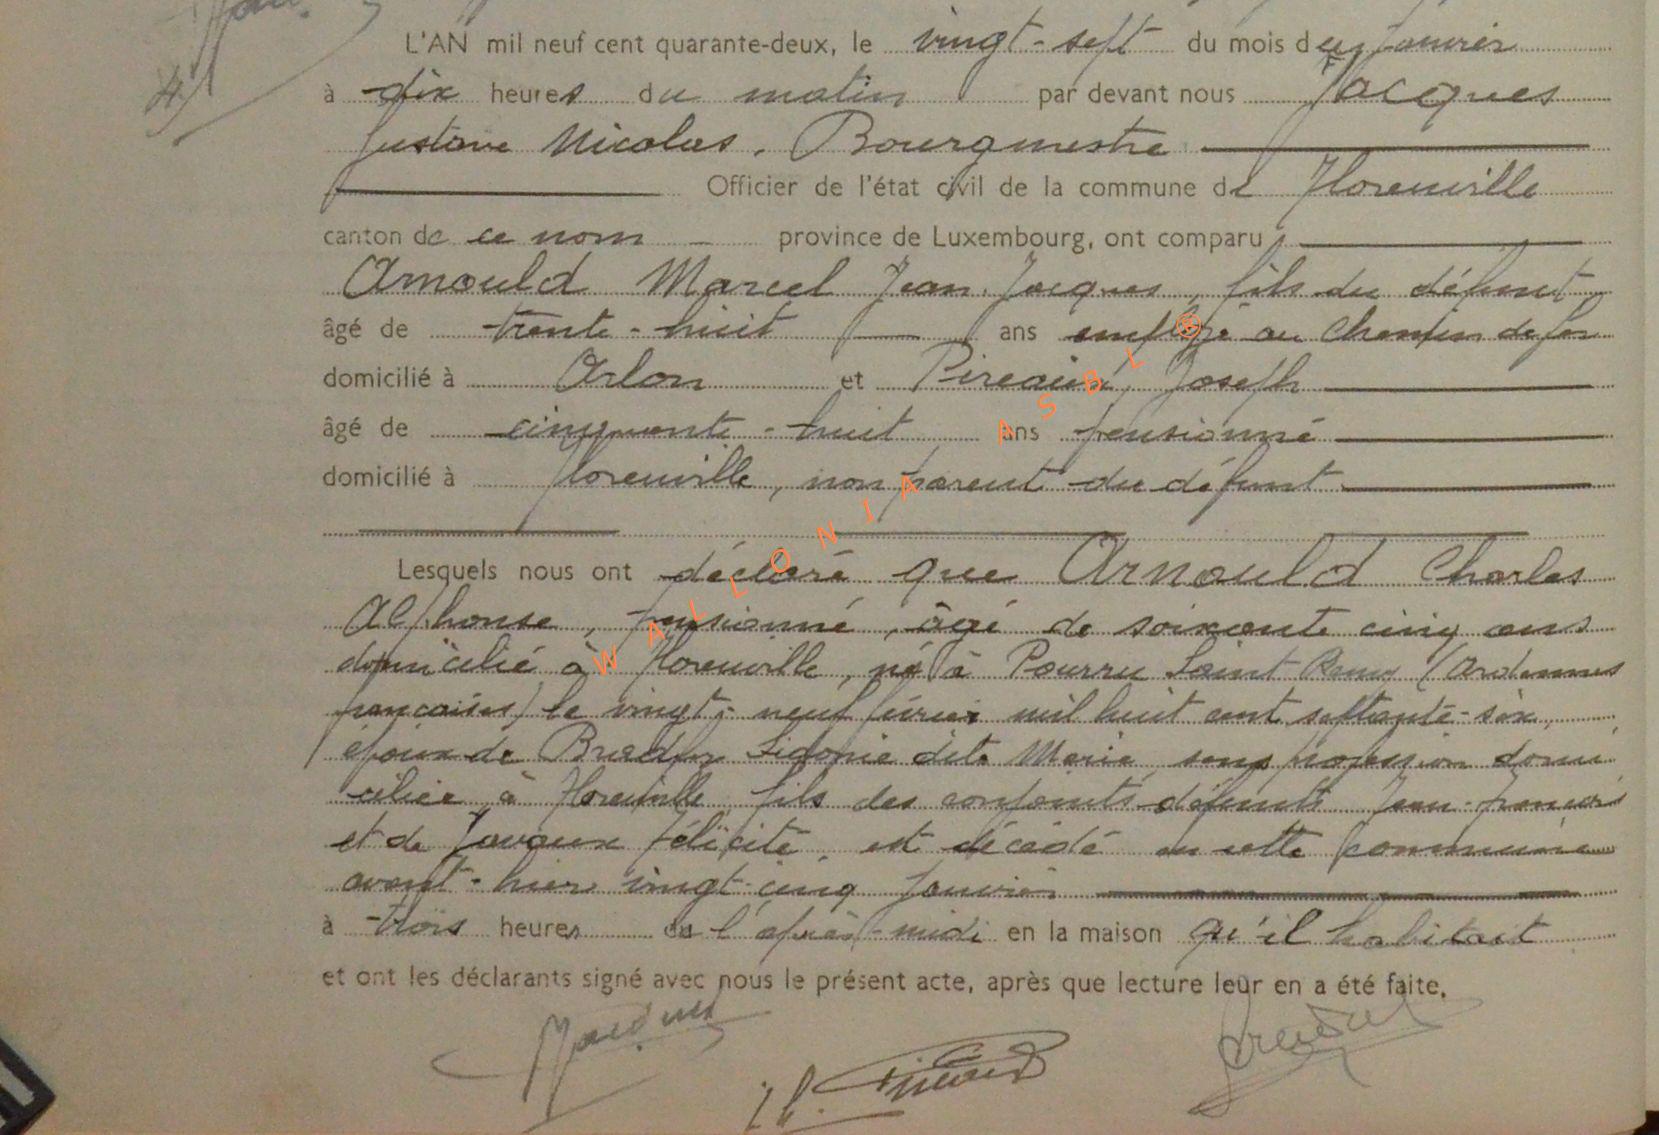 4
L'AN mil neuf cent quarante-deux, le vingt-sept du mois de janvier
à dix heures du matin par devant nous Jacques
Gustave Nicolas, Bourgmestre
Officier de l'état civil de la commune de Florenville
canton de ce nom province de Luxembourg, ont comparu
Arnould Marcel Jean Jacques, fils du défunt
âgé de trente-huit ans employé au chemin de fer
domicilié à Arlon et Pireaux, Joseph
âgé de cinquante-huit ans pensionné
domicilié à Florenville, non parent du défunt
Lesquels nous ont déclaré que Arnould Charles
Alphonse, pensionné, âgé de soixante cinq ans
domicilié à Florenville, né à Pourru Saint Remy (Ardennes
françaises) le vingt-neuf février mil huit cent septante-six,
époux de Sidonie dite Marie, sans profession domi
ciliée à Florenville, fils des conjoints défunts Jean-François
et de Javaux Félicité, est décédé en cette commune
avant-hier vingt-cinq janvier
à trois heures de l'après-midi en la maison qu'il habitait
et ont les déclarants signé avec nous le présent acte, après que lecture leur en a été faite.
WALLONIA ASBL ®